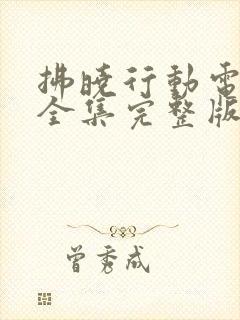 拂曉行動電
全集完整版
曾秀成